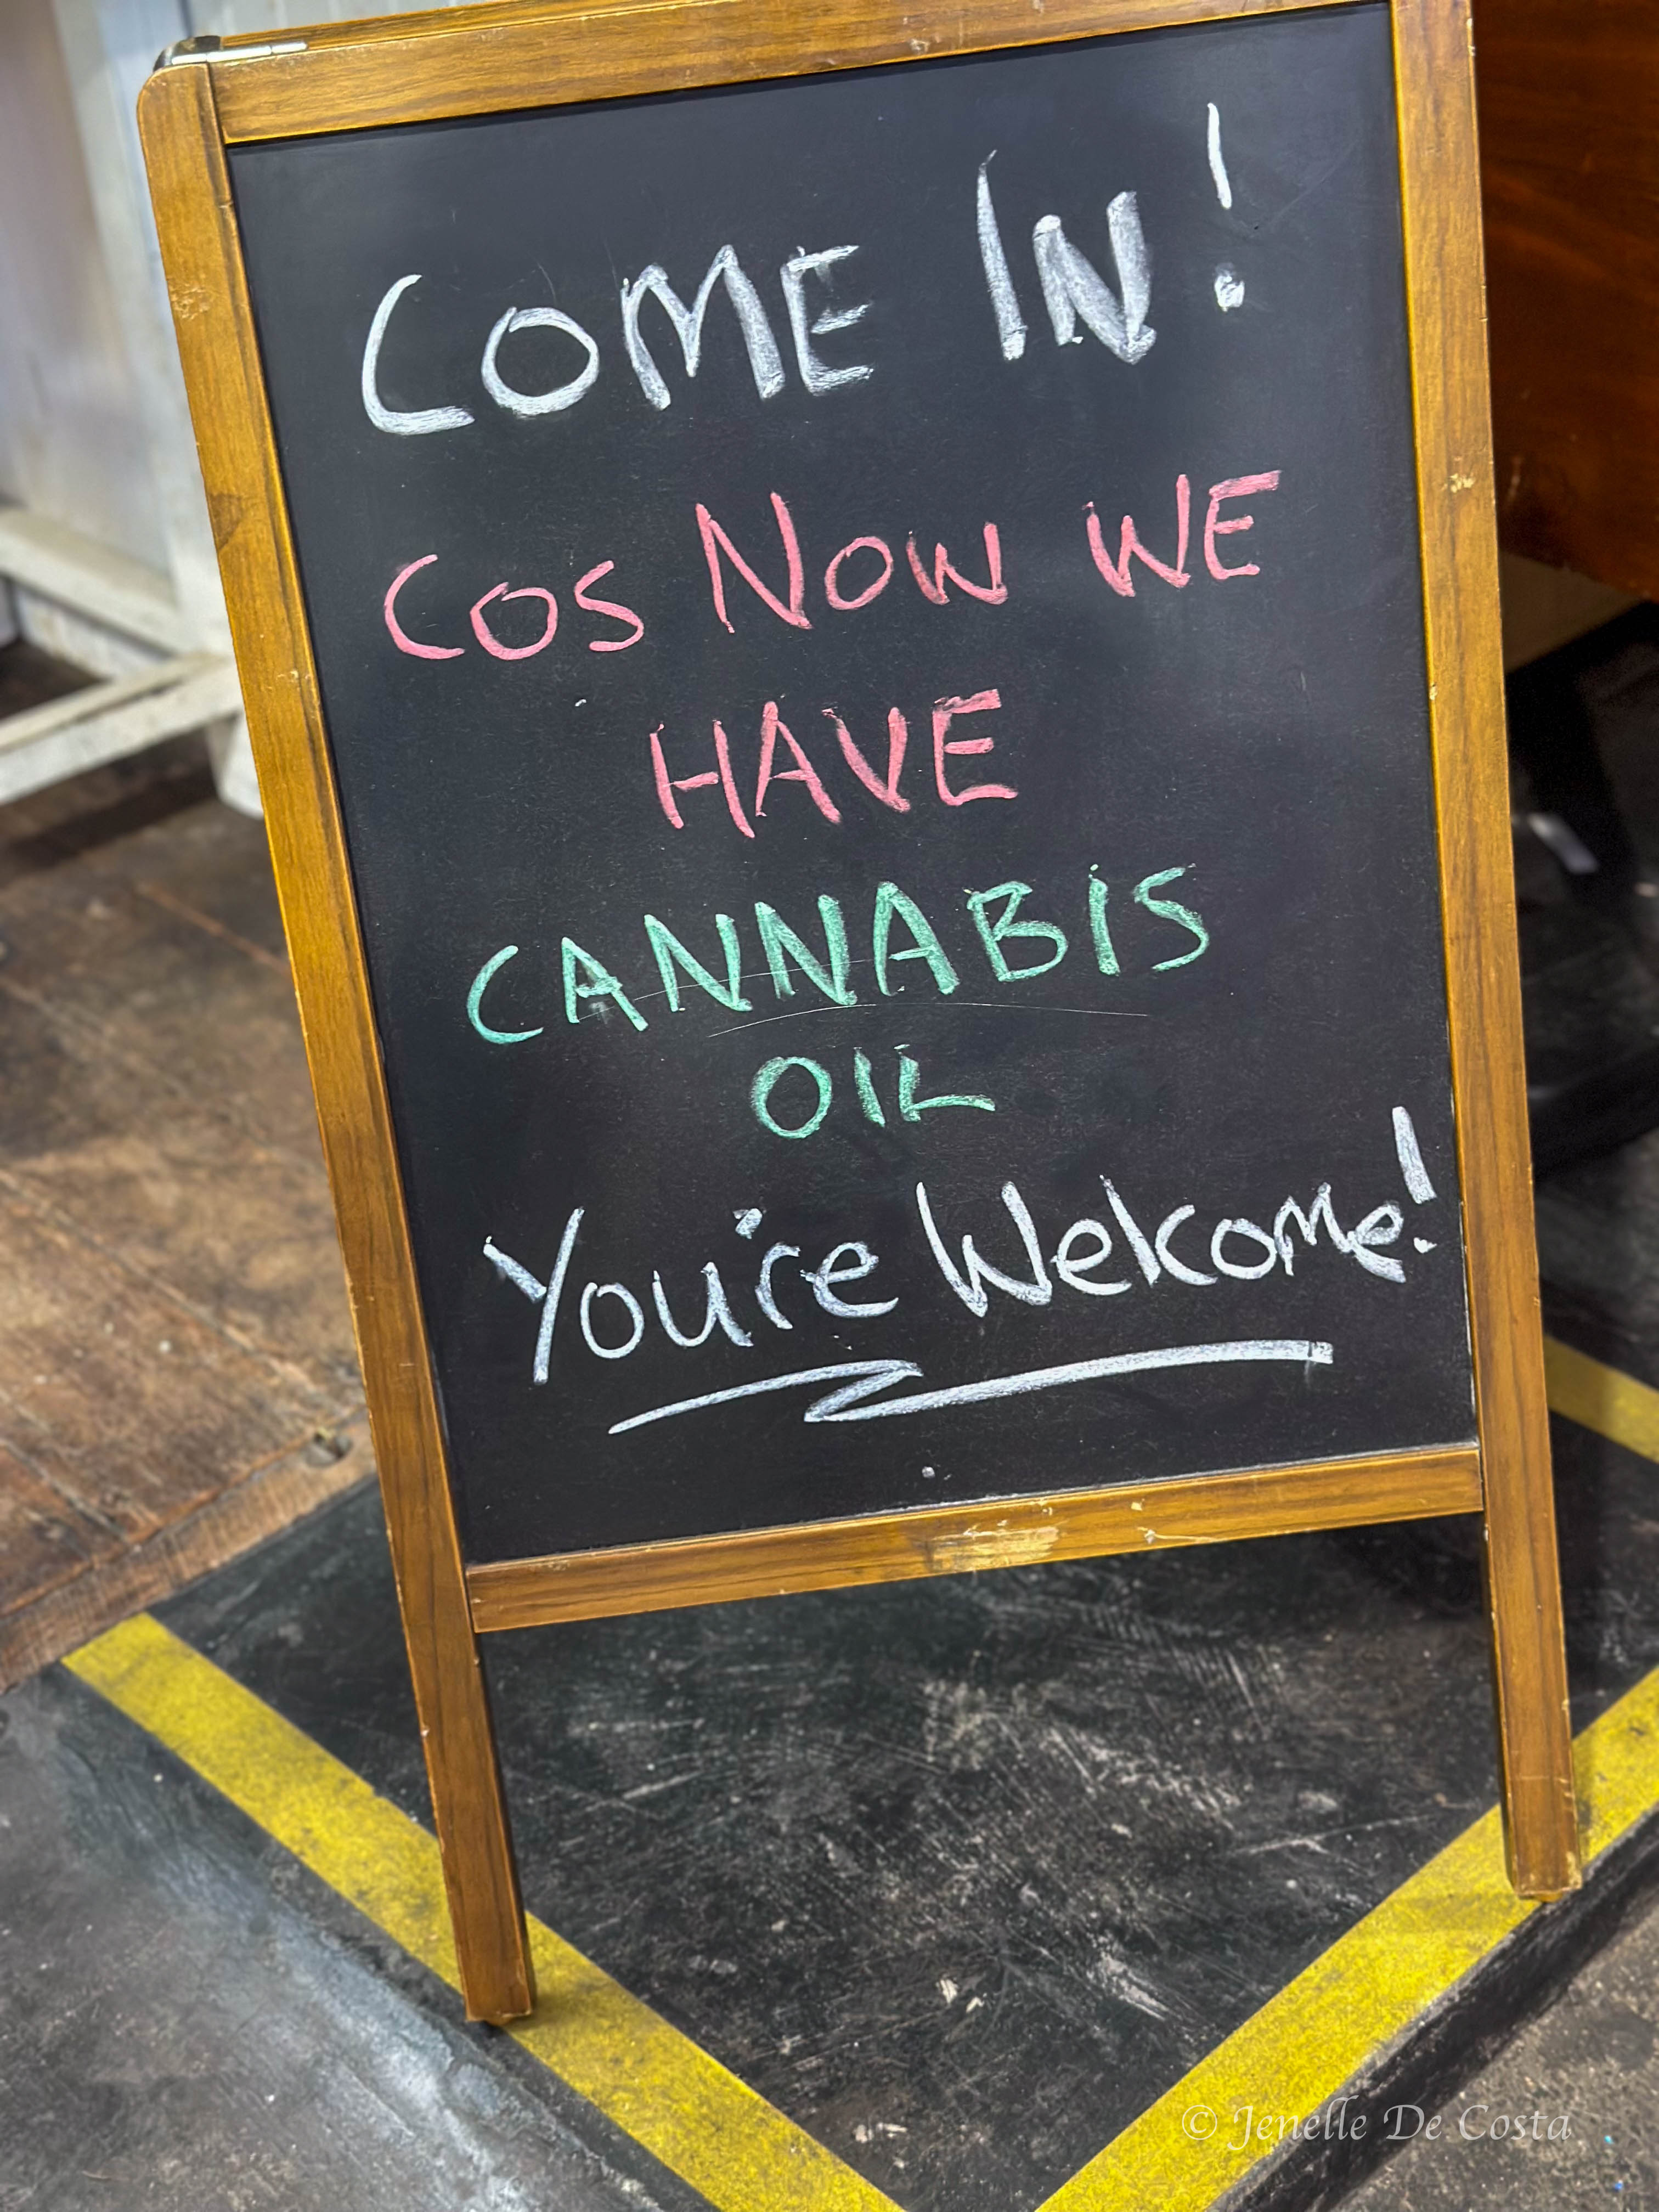 COME IN!
COS NOW WE
HAVE
CANNABIS
OIL
You're Welcome!
© Jenelle De Costa